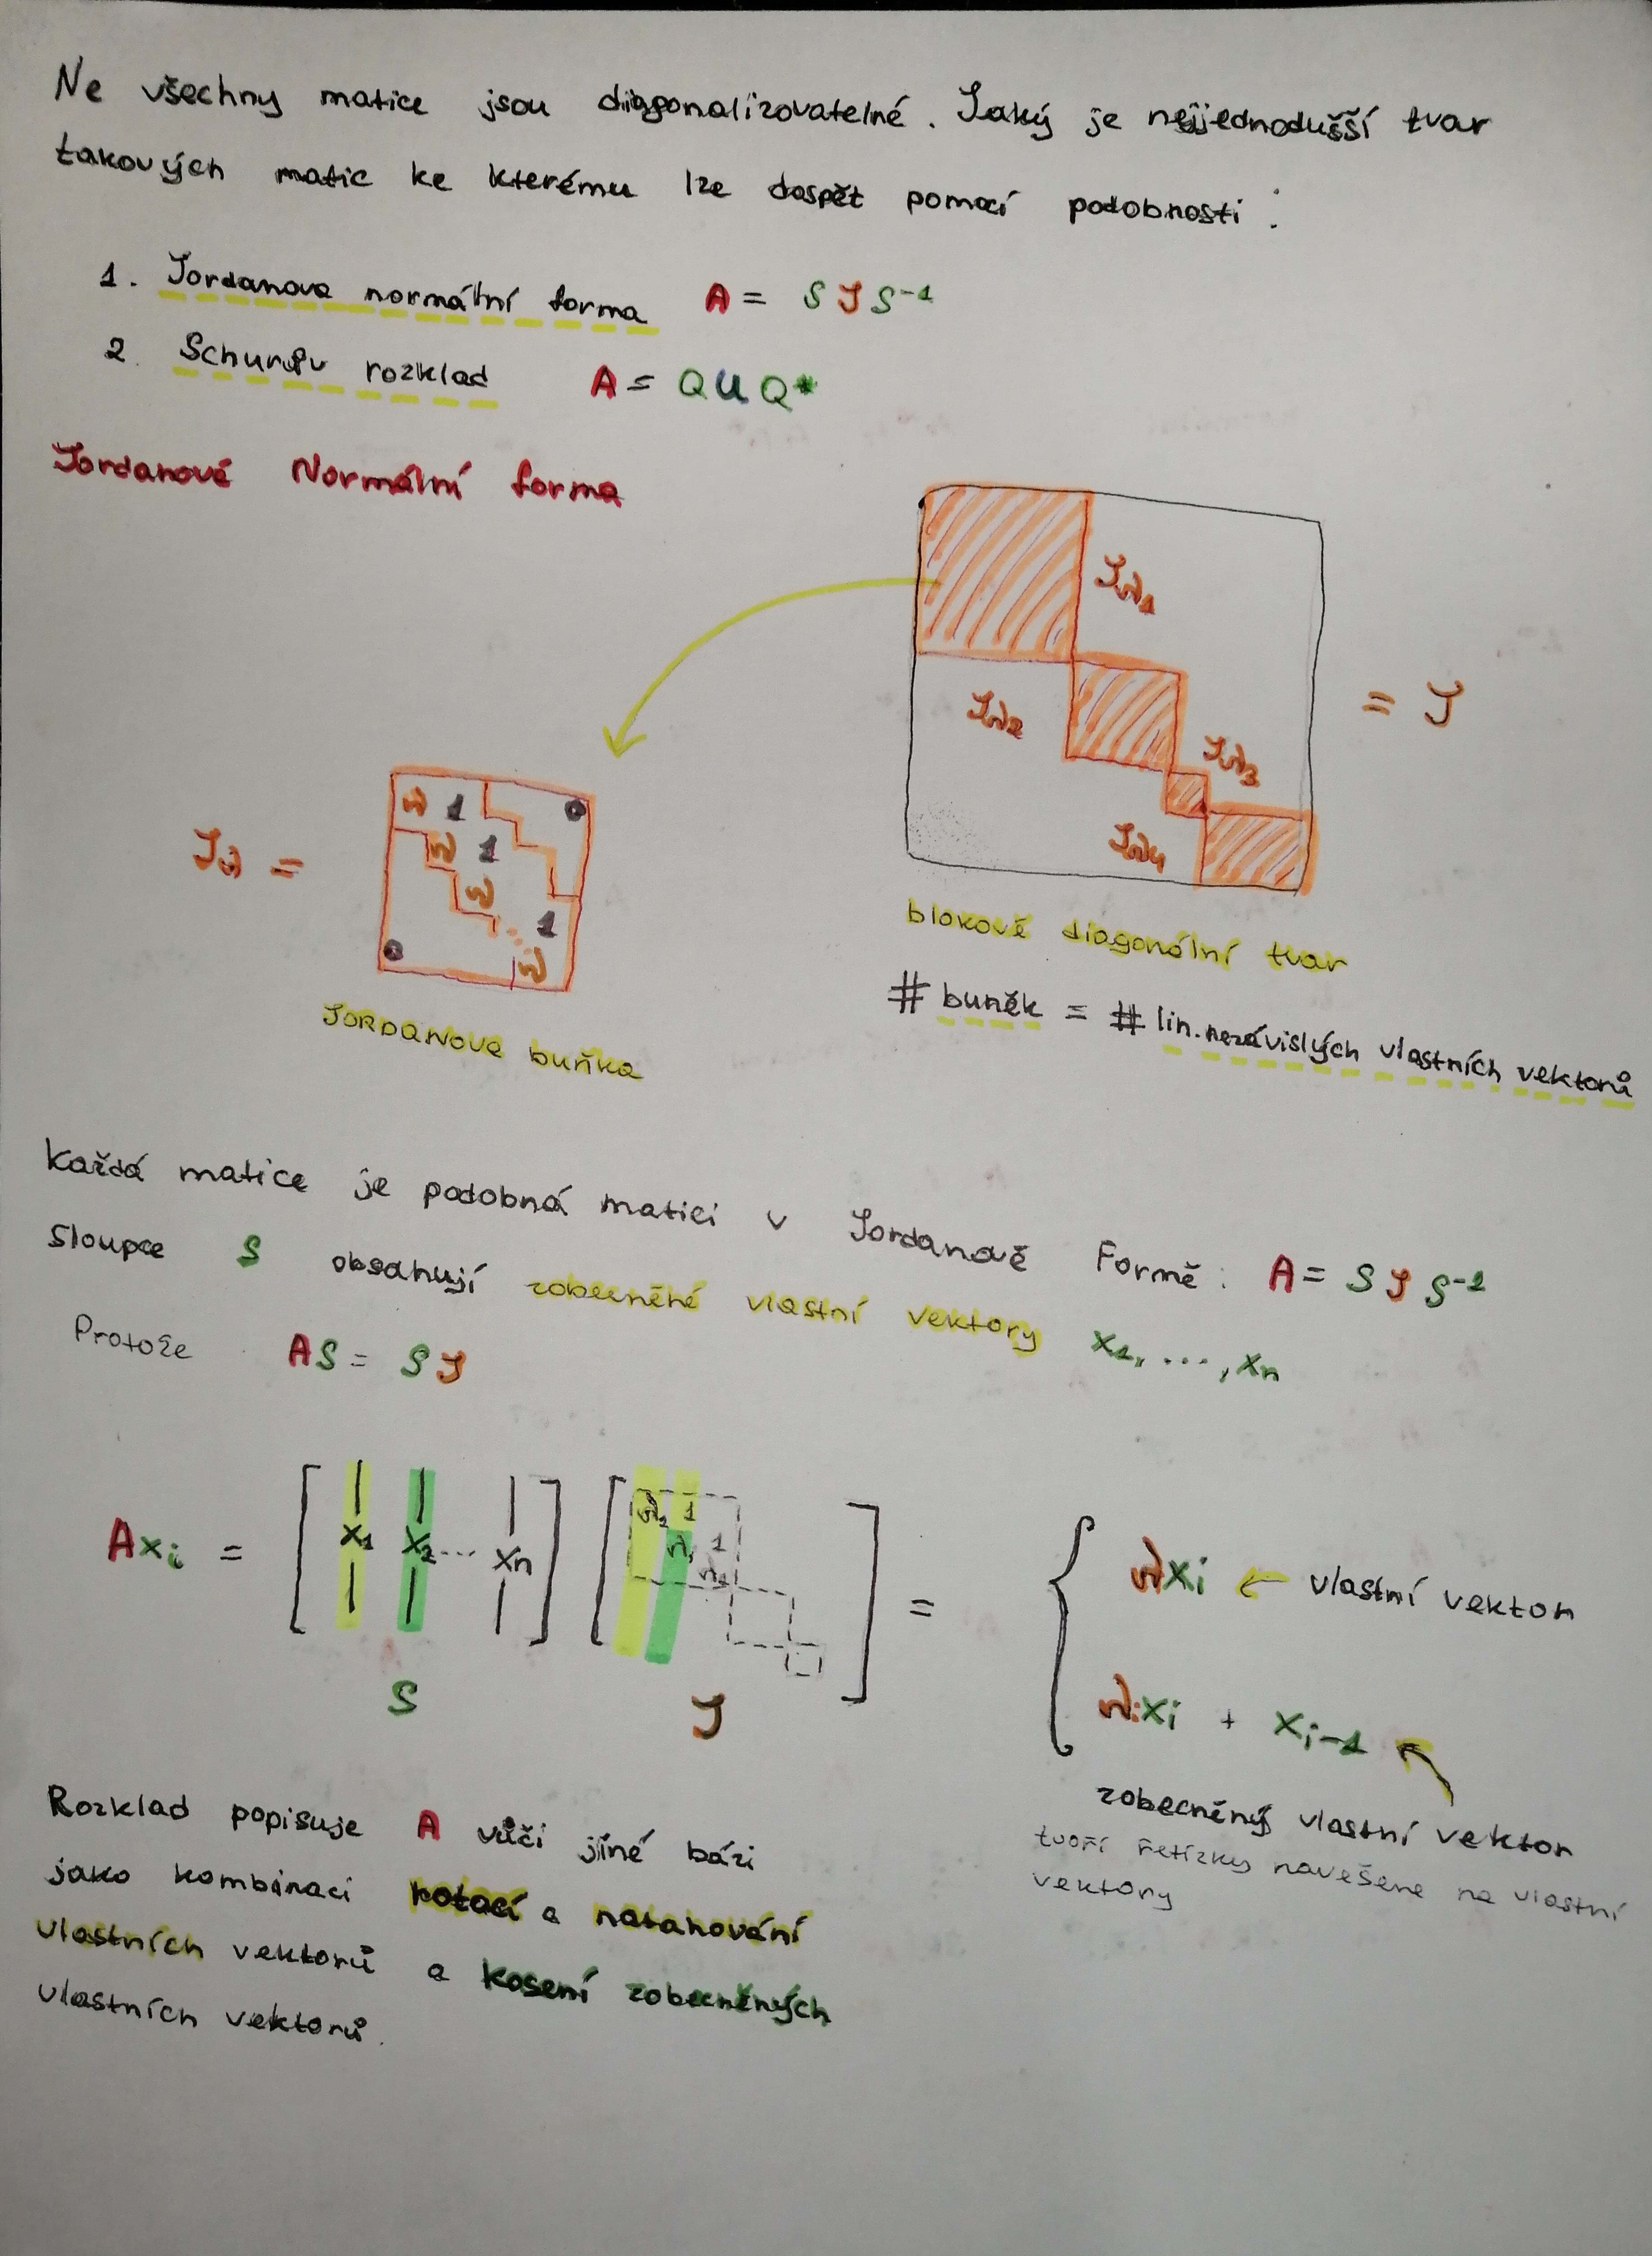 Ne všechny matice jsou diagonalizovatelné. Jaký je nejjednodušší tvar
takových matic ke kterému lze dospět pomocí podobnosti:
1. Jordanova normální forma A = S J S⁻¹
2. Schurův rozklad A = Q U Q*
Jordanové Normální forma
Jλ₁
Jλ₂
Jλ₃
Jλ₄
= J
Jλ =
λ 1 0
λ 1
λ
⋱ 1
0 λ
JORDANOVA buňka
blokově diagonální tvar
# buněk = # lin. nezávislých vlastních vektorů
Každá matice je podobná matici v Jordanově Formě: A = S J S⁻¹
Sloupce S obsahují zobecněné vlastní vektory x₁, ..., xₙ
Protože AS = S J
A xᵢ = [ x₁ x₂ ... xₙ ] [ λ₁ 1
λ₁ 1
λ₁ ] =
S J
λxᵢ ← vlastní vektor
λᵢxᵢ + xᵢ₋₁
zobecněný vlastní vektor
tvoří řetízky navěšené na vlastní
vektory
Rozklad popisuje A vůči jíné bázi
jako kombinaci rotací a natahování
vlastních vektorů a kosení zobecněných
vlastních vektorů.